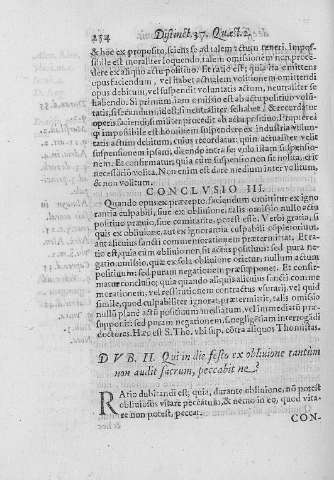 234 Distinct. 37. Quæst. 2.
& hoc ex proposito, sciens se ad talem actum teneri. Impos-
sibile est moraliter loquendo, talem omissionem non proce-
dere ex aliquo actu positiuo. Et ratio est; quia ita omittens
opus faciendum, vel habet actualem volitionem omittendi
opus debitum, vel suspendendi voluntatis actum, neutra liter se
habendo. Si primum, iam omissio est ab actu positiuo volun-
tatis, si secundum, idest, habendo se neutraliter, & recordatur
operis faciendi, similiter procedit ab actu positiuo. Implicat er
go impossibile est hominem suspendere ex industria volun-
tatis actum debitum, cuius recordatur; quin actualiter velit
suspensionem ipsam, dicendo intra se: volo istam suspensio-
nem. Et confirmatur, quia cum suspensio non sit nolita, erit
necessario volita. Non enim est dare medium inter volitum,
& non volitum.
CONCLVSIO III.
Quando opus ex præcepto faciendum omittitur ex igno-
rantia culpabili, siue ex obliuione, talis omissio nullo actu
positiuo præuio, siue comitante, potest esse. Verbi gratia, si
quis ex obliuione, aut ex ignorantia culpabili
ant alicuius sancti commemorationem prætermittat. Et ra-
tio est, quia cum obliuio non sit actus positiuus: sed pura ne-
gatio, omissio, quæ ex sola obliuione oritur, nullum actum
positiuum: sed puram negationem præsupponet. Et confir-
matur conclusio; quia quando aliquis alicuius sancti comme
morationem, vel restitutionem contractus vsurarij, vel quid
simile, quod culpabiliter ignorat, prætermittit, talis omissio
nullũ planè actũ positiuum aut mediatũ, vel immediatũ præ-
supponit: sed puram negationem, s. negligẽtiam interrogãdi
doctores. Hæc est S. Tho. vbi sup. cõtra aliquos Thomistas.
DVB. II. Qui in die festo ex obliuione tantùm
non audit sacrum, peccabit ne?
RAtio dubitandi est; quia, durante obliuione, nõ potest
obliuiosus vitare peccatum, & nemo in eo, quod vita-
re non potest, peccat.
CON-